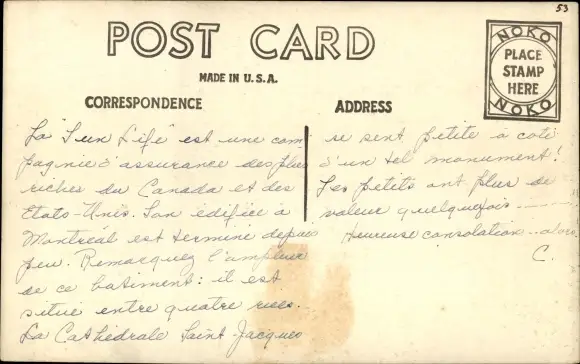 53
POST CARD
MADE IN U.S.A.
CORRESPONDENCE
ADDRESS
NOKO
PLACE
STAMP
HERE
NOKO
La "Sun Life" est une com-
pagnie d'assurance des plus
riches du Canada et des
Etats-Unis. Son édifice à
Montréal est terminé depuis
peu. Remarquez l'ampleur
de ce batiment: il est
situé entre quatre rues.
La Cathédrale Saint-Jacques
se sent petite à coté
d'un tel monument!
Les petits ont plus de
valeur quelquefois
Heureuse consolation.. alors.
C.